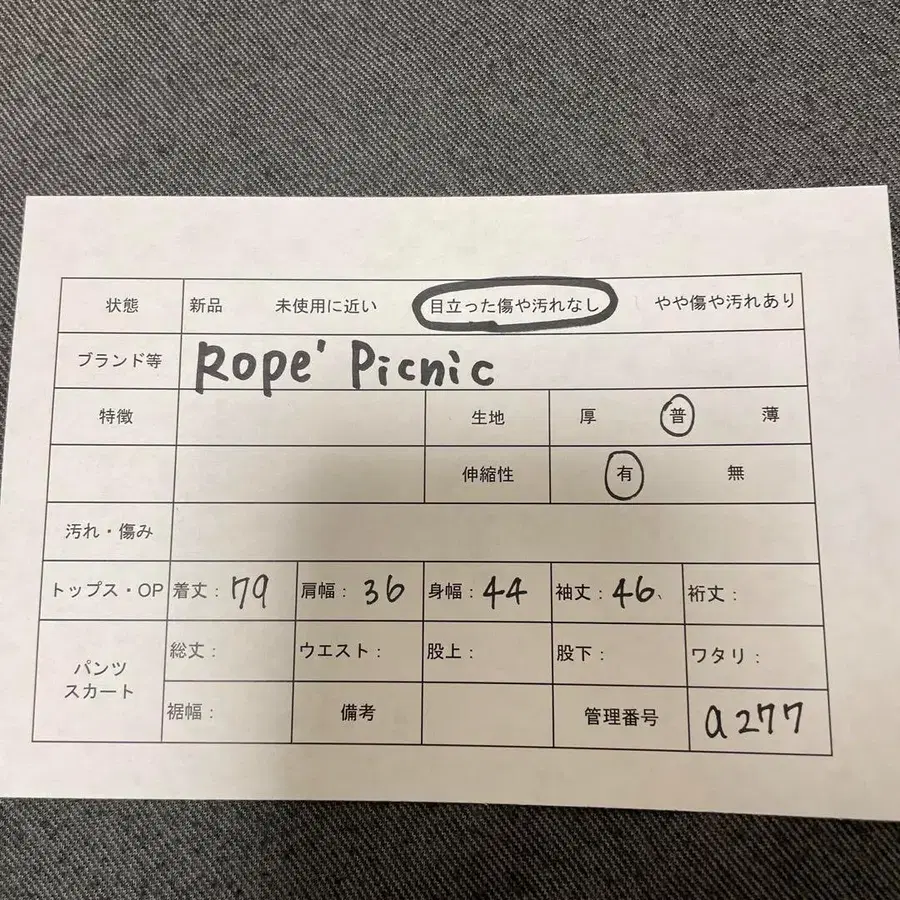 状態 新品 未使用に近い 目立った傷や汚れなし やや傷や汚れあり
ブランド等 Rope' Picnic
特徴 生地 厚 普 薄
伸縮性 有 無
汚れ・傷み
トップス・OP 着丈: 79 肩幅: 36 身幅: 44 袖丈: 46、 裄丈:
パンツ
スカート
総丈: ウエスト: 股上: 股下: ワタリ:
裾幅: 備考 管理番号 a277